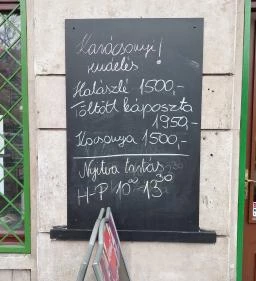 Karácsonyi
rendelés!
Halászlé 1500,-
Töltött káposzta
1950,-
Kocsonya 1500,-
Nyitva tartás
H-P 10⁰⁰-15³⁰